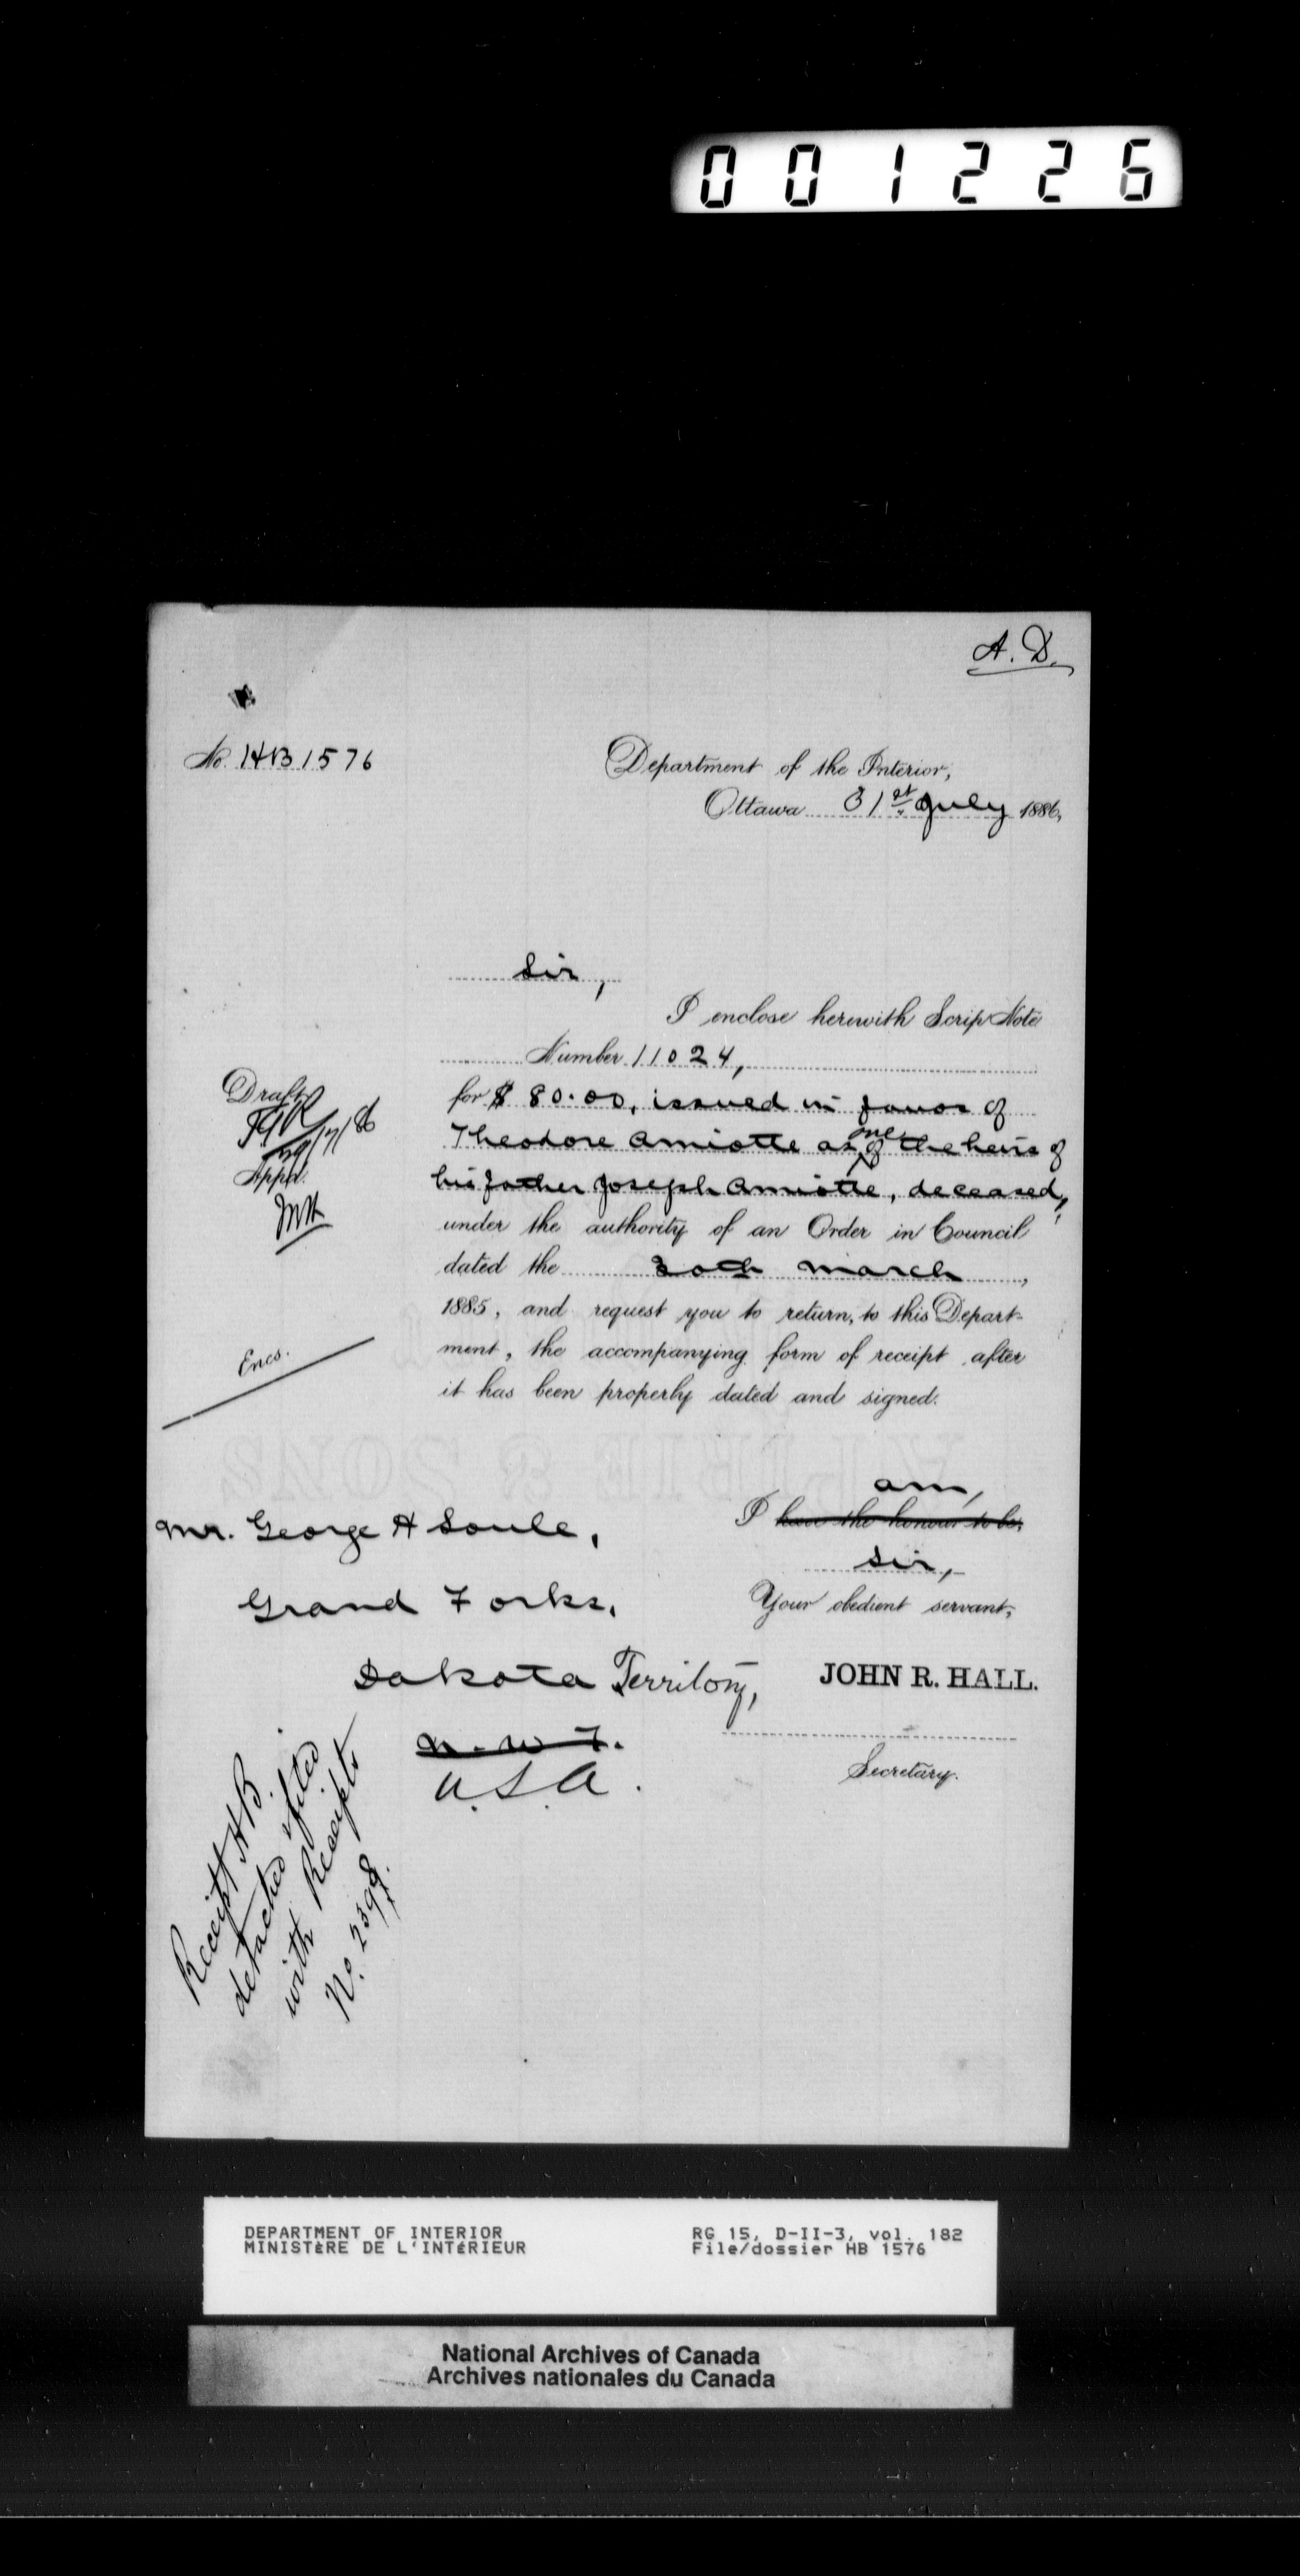 001226
A. D.
No. HB 1576
Department of the Interior,
Ottawa 31st July 1886,
Sir,
I enclose herewith Scrip Note
Number 11024,
for $ 80.00, issued in favor of
Theodore Amiotte as one of the heirs of
his father Joseph Amiotte, deceased,
under the authority of an Order in Council
dated the 30th March,
1885, and request you to return, to this Depart-
ment, the accompanying form of receipt after
it has been properly dated and signed.
Draft
29/7/86
Appd.
Encs.
am,
I have the honour to be,
Sir,
Your obedient servant,
JOHN R. HALL.
Secretary.
Mr. George A Soule,
Grand Forks,
Dakota Territory,
N. W. T.
U.S.A.
Receipt H.B.
detached & filed
with Receipts
No. 2398.
DEPARTMENT OF INTERIOR
MINISTÈRE DE L'INTÉRIEUR
RG 15, D-II-3, vol. 182
File/dossier HB 1576
National Archives of Canada
Archives nationales du Canada